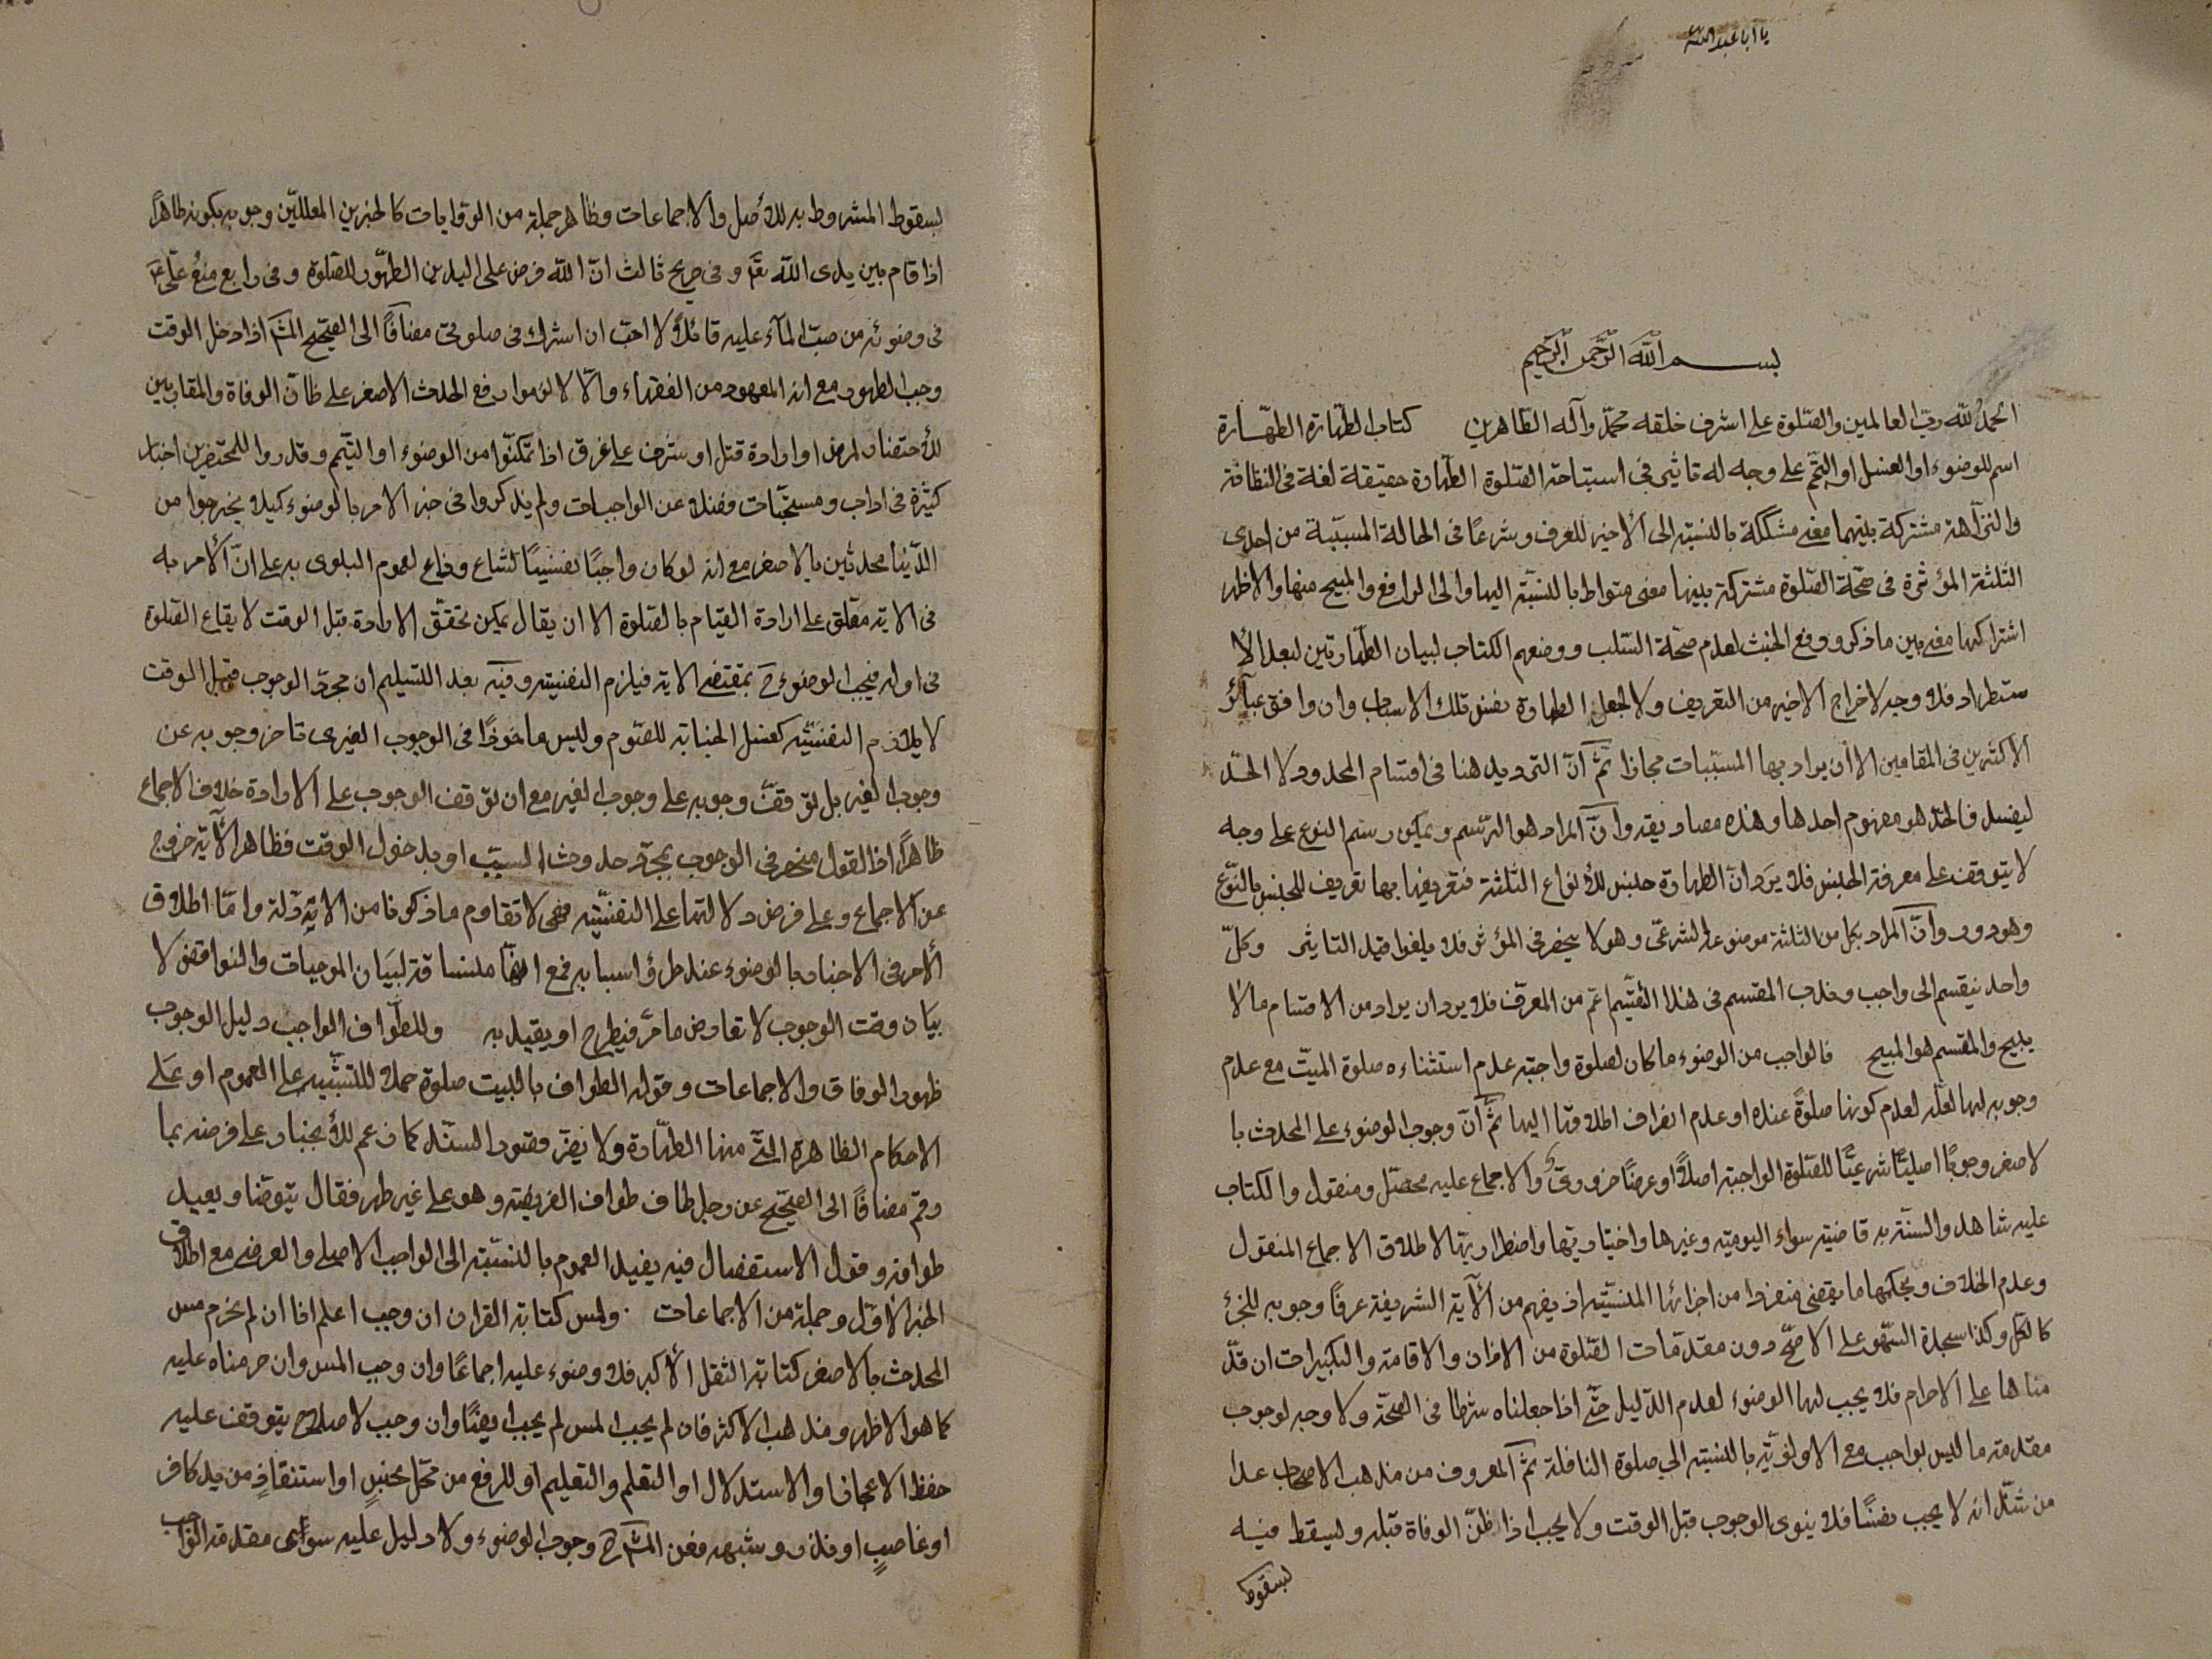 يا ابا عبد الله
بسم الله الرحمن الرحيم
الحمد لله رب العالمين والصّلوة على اشرف خلقه محمّد وآله الطاهرين كتاب الطّهارة الطهّارة
اسم للوضوء او الغسل او التيمّم على وجه له تاثير في استباحة الصّلوة الطهارة حقيقة لغة في النظافة
والنزاهة مشتركة بينهما معنى مشككة بالنسبة الى الأخير للعرف وشرعًا فى الحالة المسبّبة من احدى
الثلثة المؤثرة فى صحّة الصّلوة مشتركة بينها معنى متواط بالنسبة اليها والى الرافع والمبيح منها والاظهر
اشتراكها معنى بين ما ذكر ورفع الخبث لعدم صحّة السّلب ووضعهم الكتاب لبيان الطّهارتين لبعد الا
ستطراد فلا وجه لاخراج الاخير من التعريف ولا لجعل الطهارة نفس تلك الاسباب وان وافق عبائر
الاكثرين فى المقامين الا ان يراد بها المسبّبات مجازا ثمّ انّ الترديد هنا فى اقسام المحدود لا الحدّ
ليفسد فالحدّ هو مفهوم احدها وهذه مصاديقه وانّ المراد هو الرّسم ويمكن رسم النوع على وجه
لا يتوقف على معرفة الجنس فلا يرد انّ الطهارة جنس للأنواع الثلثة فتعريفها بها تعريف للجنس بالنوع
وهو دور وانّ المراد بكل من الثلثة موضوعه الشرعىّ وهو لا ينحصر فى المؤثر فلا يلغوا قيد التاثير وكلّ
واحد ينقسم الى واجب وندب المقسم فى هذا التقسيم اعمّ من المعرّف فلا يرد ان يراد من الاقسام ما لا
يبيح والمقسم هو المبيح فالواجب من الوضوء ما كان لصلوة واجبة عدم استثناءه صلوة الميّت مع عدم
وجوبه لها لعلّه لعدم كونها صلوةً عنده او عدم انصراف اطلاقها اليها ثمّ انّ وجوب الوضوء على المحدث با
لاصغر وجوبًا اصليًّا شرعيًّا للصّلوة الواجبة اصلاً او عرضًا ضرورىّ والاجماع عليه محصّل ومنقول والكتاب
عليه شاهد والسنّة به قاضية سواء اليومية وغيرها واختياريتها واضطراريتها لاطلاق الاجماع المنقول
وعدم الخلاف وبحكمها ما يقضى منفردا من اجزائها المنسيّة اذ يفهم من الآية الشريفة عرفًا وجوبه للجزء
كالكلّ وكذا سجدة السّهو على الاصحّ دون مقدّمات الصّلوة من الاذان والاقامة والتكبيرات ان قدّ
مناها على الاحرام فلا يجب لها الوضوء لعدم الدّليل حتّى اذا جعلناه شرطا فى الصحّة ولا وجه لوجوب
مقدمة ما ليس بواجب مع الاولويّة بالنسبة الى صلوة النافلة ثمّ المعروف من مذهب الاصحاب عدا
من شذّ انه لا يجب نفسًا فلا ينوى الوجوب قبل الوقت ولا يجب اذا ظنّ الوفاة قبله ويسقط فيه
لسقوط
لسقوط المشروط به للأصل والاجماعات وظاهر جملة من الروايات كالخبرين المعلّلين وجوبه بكونه طاهرًا
اذا قام بين يدى الله تعَ وفى صريح ثالث انّ الله فرض على اليدين الطهور للصّلوة وفى رابع منع علىّ عَ
فى وضوئه من صبّ المآء عليه قائلاً لا احبّ ان اشرك فى صلوتى مضافًا الى الصحيح المشَ اذا دخل الوقت
وجب الطهور مع انه المعهود من الفقهاء والّا لالزموا رفع الحدث الاصغر على ظانّ الوفاة والمقاربين
للأحتضار لمرض او ارادة قتل او شرف على غرق اذا تمكّنوا من الوضوء او التيّمم وقد روا للمحتضرين اخبار
كثيرة فى اداب ومستحبّات فضلا عن الواجبات ولم يذكروا فى خبر الامر بالوضوء كيلا يخرجوا من
الدّنيا محدثين بالاصغر مع انه لو كان واجبًا نفسيًا لشاع وذاع لعموم البلوى به على انّ الأمر به
فى الاية معلّق على ارادة القيام بالصّلوة الا ان يقال يمكن تحقّق الارادة قبل الوقت لايقاع الصّلوة
فى اوله فيجب الوضوء ح بمقتضى الاية فيلزم النفسيّة وفيه بعد التسليم ان مجرّد الوجوب قبل الوقت
لا يلازم النفسيّة كغسل الجنابة للصّوم وليس ماخوذًا فى الوجوب الغيرى تاخر وجوبه عن
وجوب الغير بل توقّف وجوبه على وجوب الغير مع ان توقف الوجوب على الارادة خلاف الاجماع
ظاهرًا اذ القول منحصر فى الوجوب بمجرّد حدوث السبب او بدخول الوقت فظاهر الآية خروج
عن الاجماع وعلى فرض دلالتها على النفسيّة فهى لا تقاوم ما ذكرنا من الادلّة وامّا اطلاق
الأمر فى الاخبار بالوضوء عند طرؤّ اسبابه فمع انّها منساقة لبيان الموجبات والنواقض لا
بيان وقت الوجوب لا تعارض ما مرّ فيطرح او يقيد به وللطّواف الواجب دليل الوجوب
ظهور الوفاق والاجماعات وقوله الطواف بالبيت صلوة حملا للتشبيه على العموم او على
الاحكام الظاهرة الّتى منها الطهّارة ولا يضرّ قصور السنّد كما زعم للأنجبار على فرضه بما
وقع مضافًا الى الصحيح عن رجل طاف طواف الفريضة وهو على غير طهر فقال يتوضا ويعيد
طوافه وقول الاستفصال فيه يفيد العموم بالنسبة الى الواجب الاصلى والعرضى مع اطلاق
الخبر الأوّل وجملة من الاجماعات ولمس كتابة القران ان وجب اعلم انا ان لم نحرم مس
المحدث بالاصغر كتابة الثقل الأكبر فلا وضوء عليه اجماعًا وان وجب المس وان حرمناه عليه
كما هو الاظهر ومذهب الاكثر فان لم يجب المس لم يجب ايضًا وان وجب لاصلاح يتوقف عليه
حفظ الاعجاز او الاستدلال او التعلم والتعليم او للرفع من محّل نجسٍ او استنقاذٍ من يد كافر
او غاصبٍ او نذر وشبهه فعن المشَ ح وجوب الوضوء ولا دليل عليه سوى مقدمة الواجب